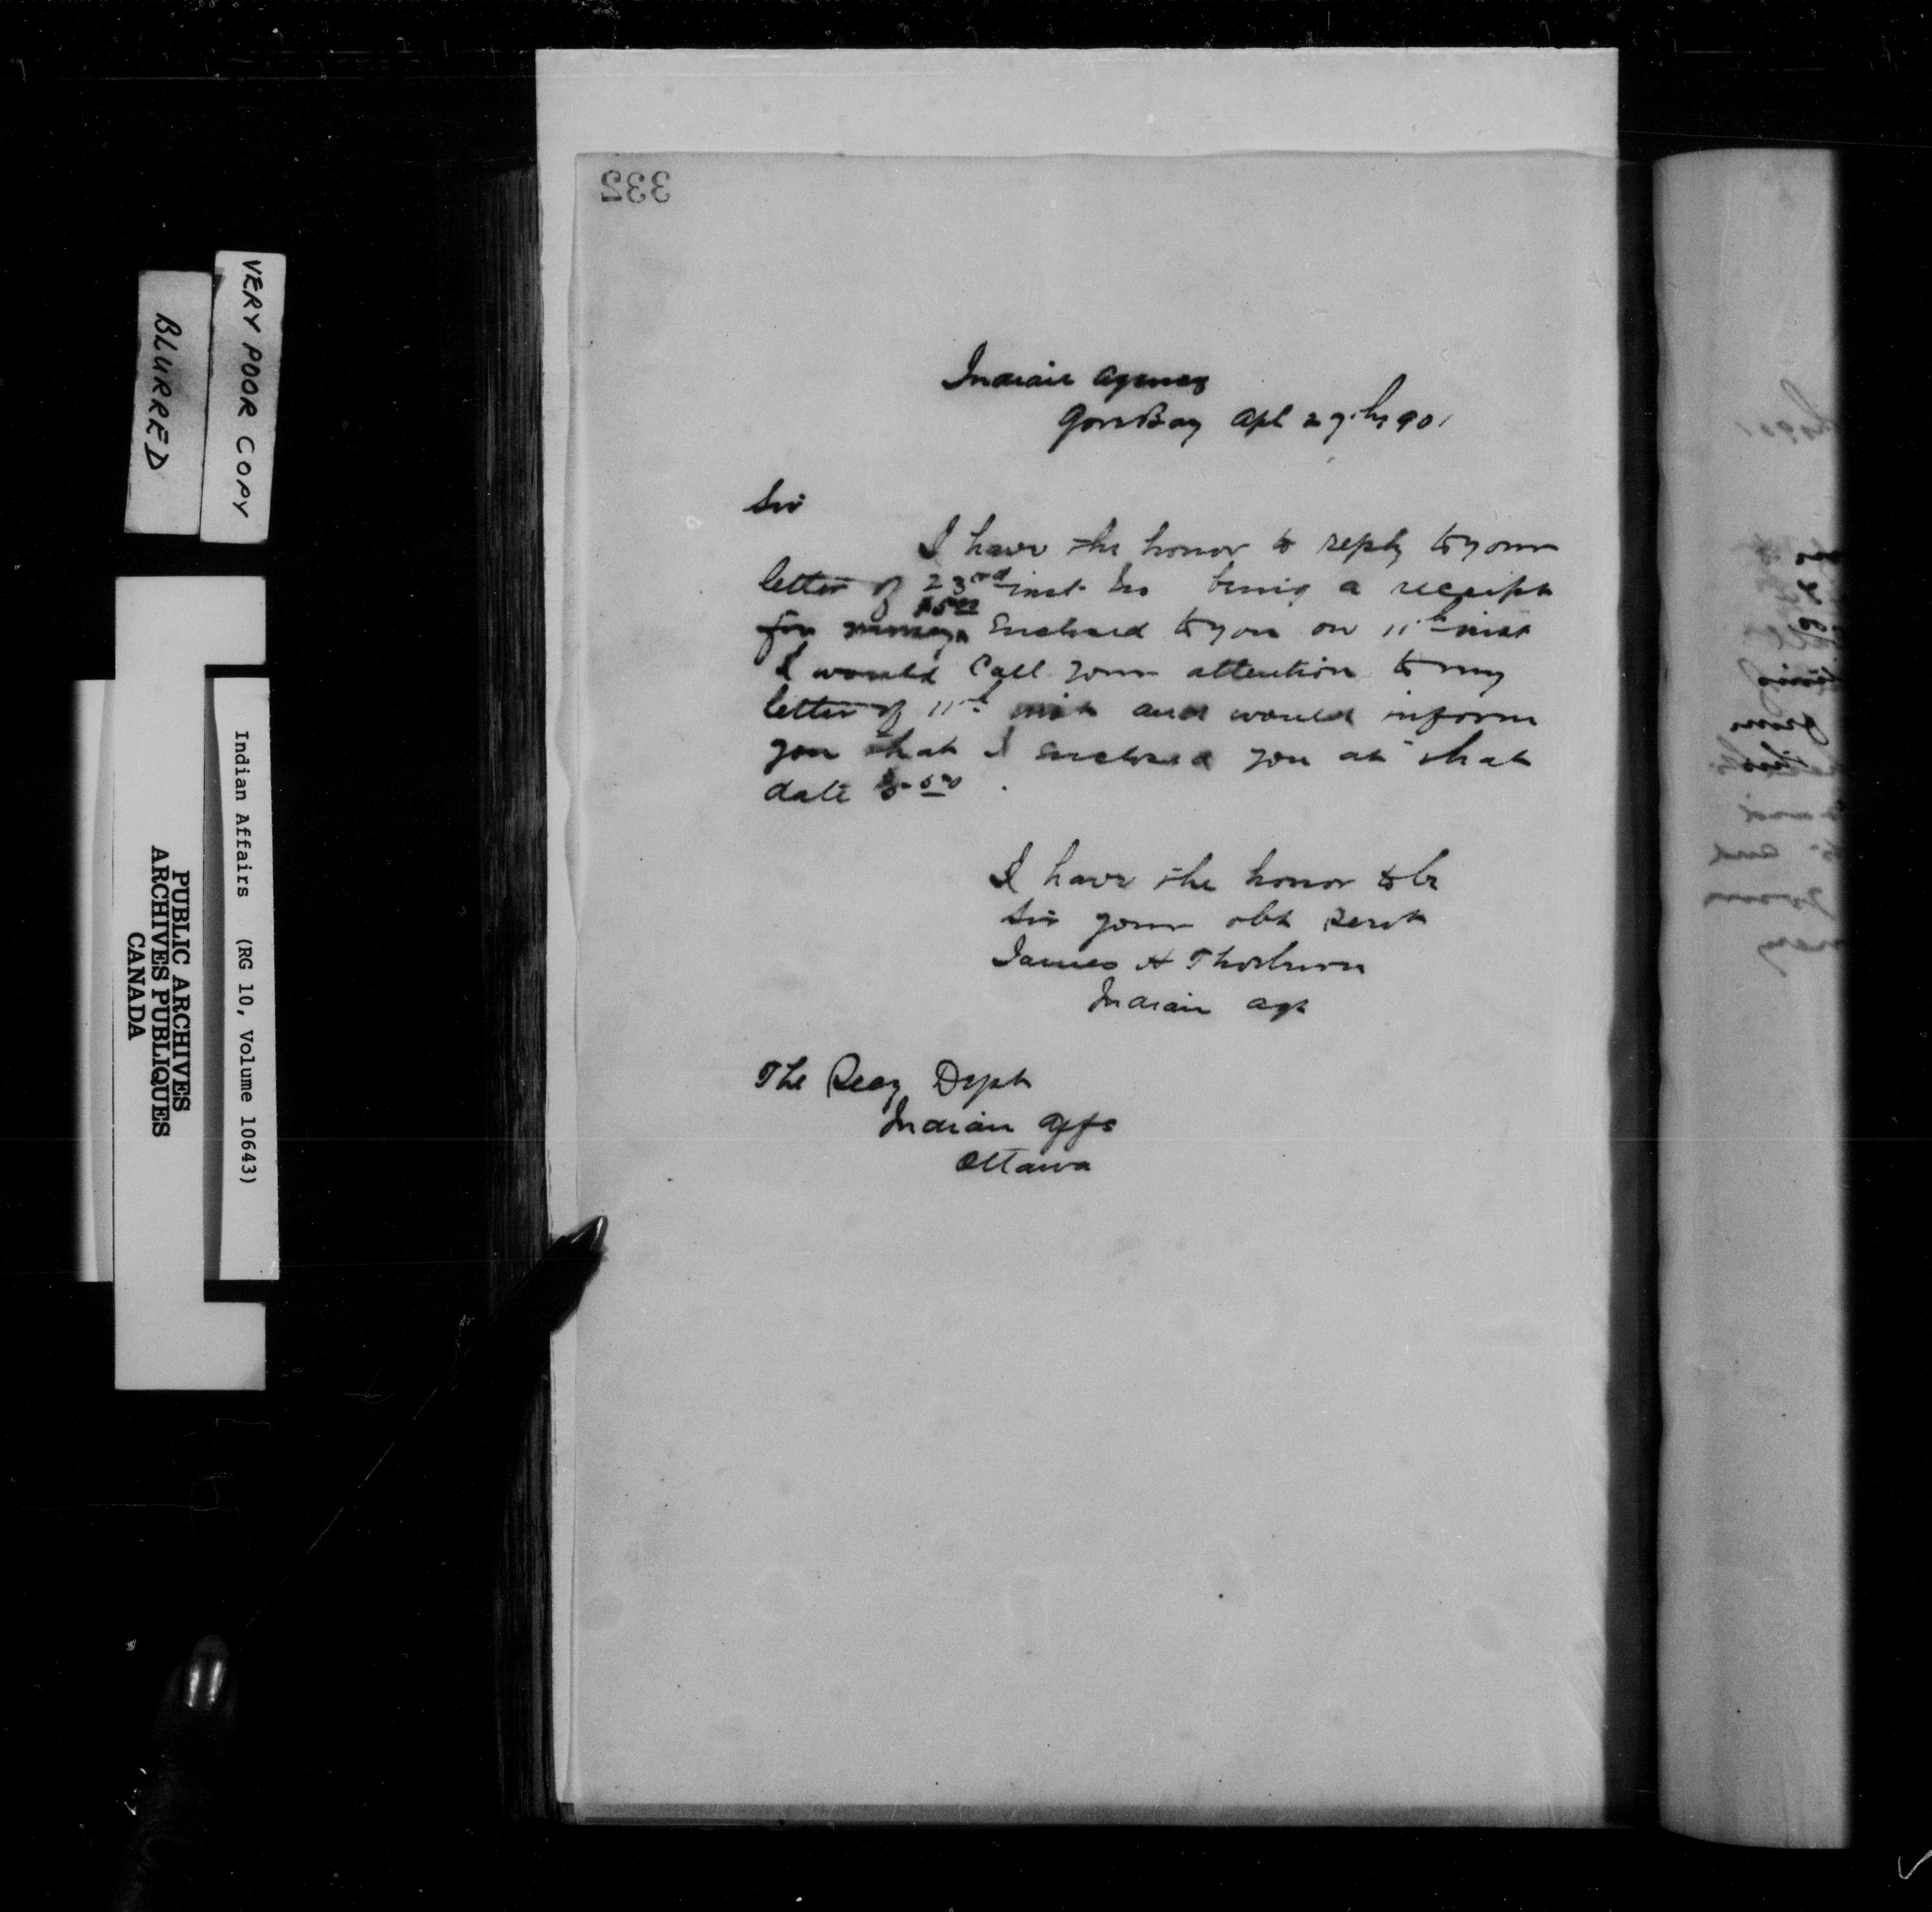 332
Indian Agency
Gore Bay Apl 27th 1901
Sir
I have the honor to reply to your
letter of 23rd inst being a receipt
for money enclosed to you on 11th inst
I would Call your attention to my
letter of 11th inst and would inform
you that I enclosed you at that
date
I have the honor to be
Sir your obt Servt
James H Thorburn
Indian Agt
The Secy Dept
Indian Affs
Ottawa
VERY POOR COPY
BLURRED
Indian Affairs (RG 10, Volume 10643)
PUBLIC ARCHIVES
ARCHIVES PUBLIQUES
CANADA